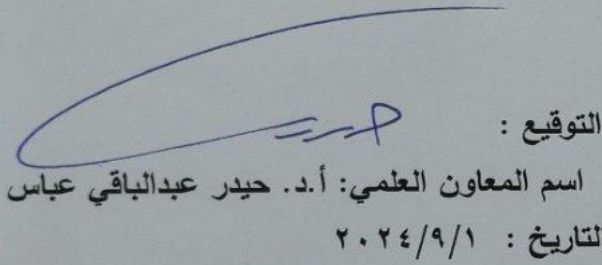 التوقيع :
اسم المعاون العلمي: أ.د. حيدر عبدالباقي عباس
لتاريخ : ٢٠٢٤/٩/١